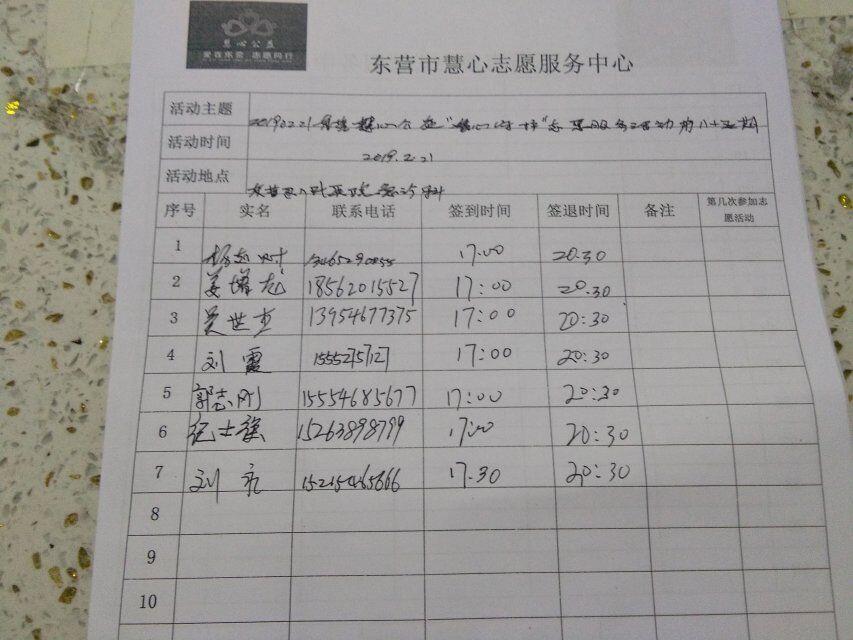 慧心公益
爱在东营 志愿同行
东营市慧心志愿服务中心
活动主题 20190221 慧心公益 志愿服务活动第八十五期
活动时间 2019.2.21
活动地点
序号 实名 联系电话 签到时间 签退时间 备注 第几次参加志愿活动
1 17:00 20:30
2 姜增龙 18562015527 17:00 20:30
3 吴世杰 13954677375 17:00 20:30
4 刘霞 15552757127 17:00 20:30
5 郭志刚 15554685677 17:00 20:30
6 纪士旗 15263898799 17:00 20:30
7 刘元 15215465666 17.30 20:30
8
9
10